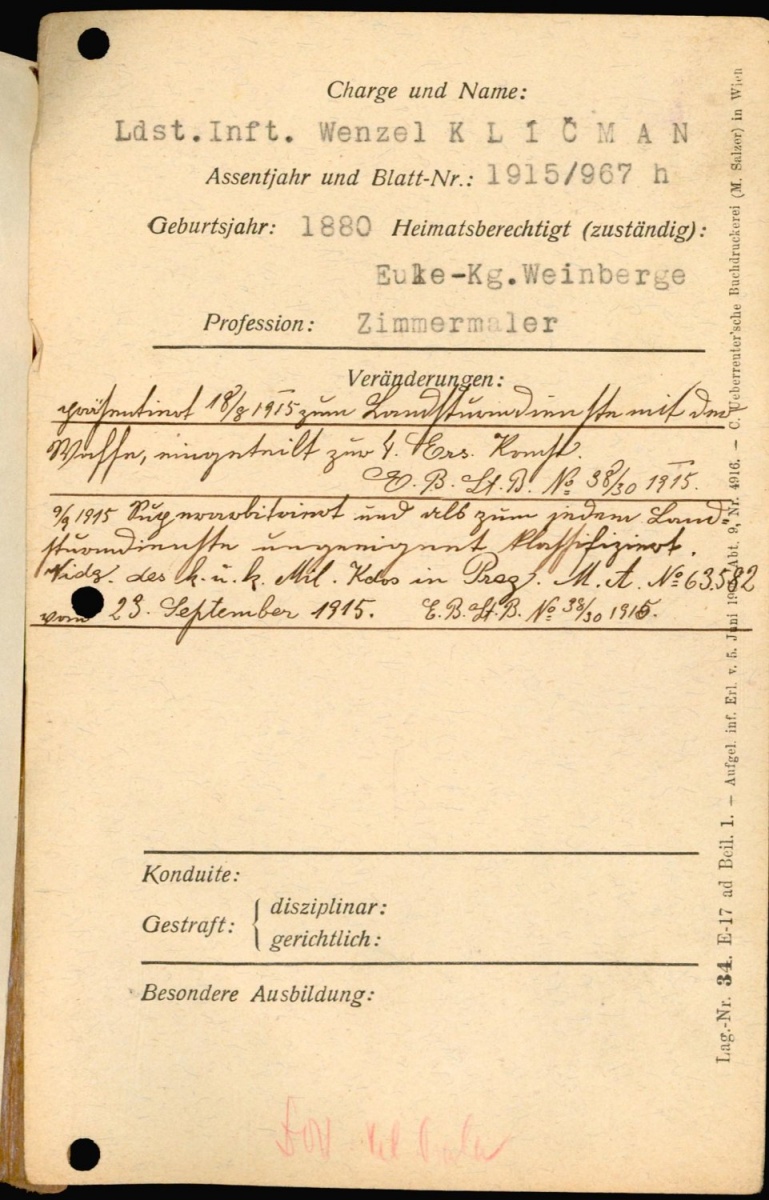 Charge und Name:
Ldst.Inft. Wenzel K L I Č M A N
Assentjahr und Blatt-Nr.: 1915/967 h
Geburtsjahr: 1880 Heimatsberechtigt (zuständig):
Eule-Kg.Weinberge
Profession: Zimmermaler
Veränderungen:
präsentiert 18/8 1915 zum Landsturmdienste mit der
Waffe, eingeteilt zur 4. Ers. Komp.
E. B. Lt. B. No 38/30 1915.
9/9 1915 Superarbitriert und als zum jedem Land-
sturmdienste ungeeignet klassifiziert.
Vidz. des k. u. k. Mil. Kdos in Prag. M. A. No 63582
vom 23. September 1915. E. B. Lt. B. No 38/30 1915.
Konduite:
Gestraft: { disziplinar:
gerichtlich:
Besondere Ausbildung:
Lag.-Nr. 34. E-17 ad Beil. 1. — Aufgel. inf. Erl. v. 5. Juni Abt. 9, Nr. 4916. — C. Ueberreuter'sche Buchdruckerei (M. Salzer) in Wien